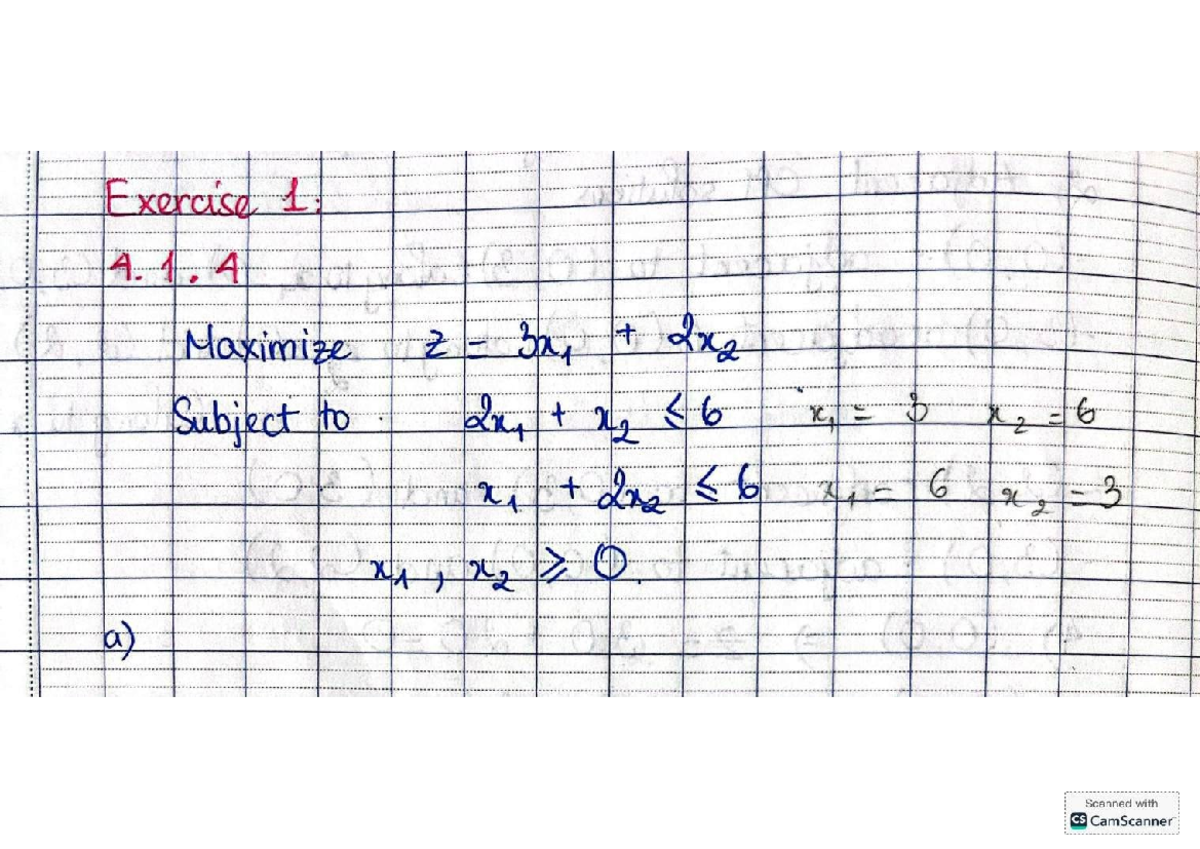 Exercise 1:
4.1.4
Maximize z = 3x₁ + 2x₂
Subject to 2x₁ + x₂ ≤ 6 x₁ = 3 x₂ = 6
x₁ + 2x₂ ≤ 6 x₁ = 6 x₂ = 3
x₁ , x₂ ≥ 0.
a)
Scanned with
CS CamScanner